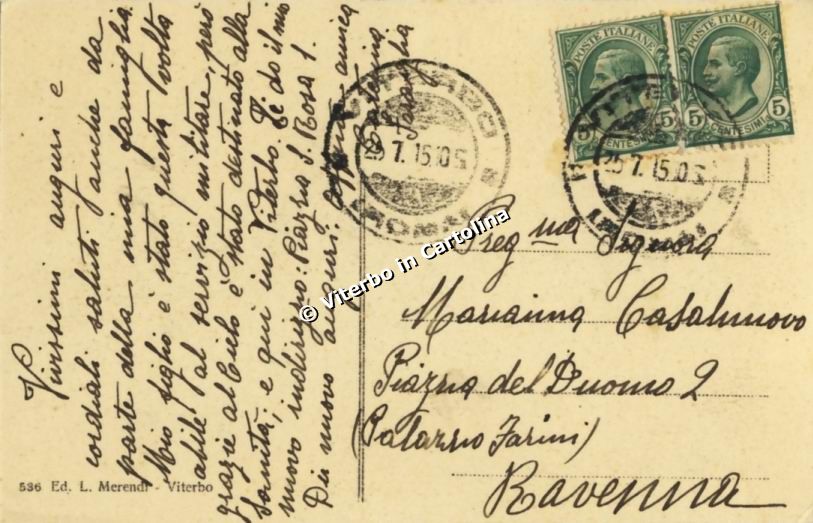 Vivissimi auguri e
cordiali saluti anche da
parte della mia famiglia.
Mio figlio è stato questa volta
abile al servizio militare, però
grazie al Cielo è stato destinato alla
Sanità, e qui in Viterbo. Le do il mio
nuovo indirizzo: Piazza S. Rosa 1.
Dei nuovo auguri. amica
Caterina
POSTE ITALIANE
5 CENTESIMI 5
POSTE ITALIANE
5 CENTESIMI 5
VITERBO
25.7.15.10 S
(ROMA)
25.7.15.10 S
Preg ma Signora
Marianna Casalnuovo
Piazza del Duomo 2
(Palazzo Farini)
Ravenna
536 Ed. L. Merendi - Viterbo
© Viterbo in Cartolina